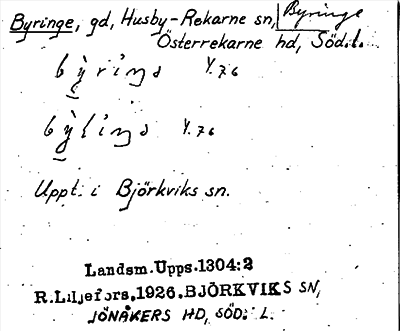 Byringe, gd, Husby-Rekarne sn, Byringe
Österrekarne hd, Söd. l.
Y. 76
Y. 76
Uppt. i Björkviks sn.
Landsm. Upps. 1304:2
R. Liljefors. 1926. BJÖRKVIKS SN,
JÖNÅKERS HD, SÖD. L.